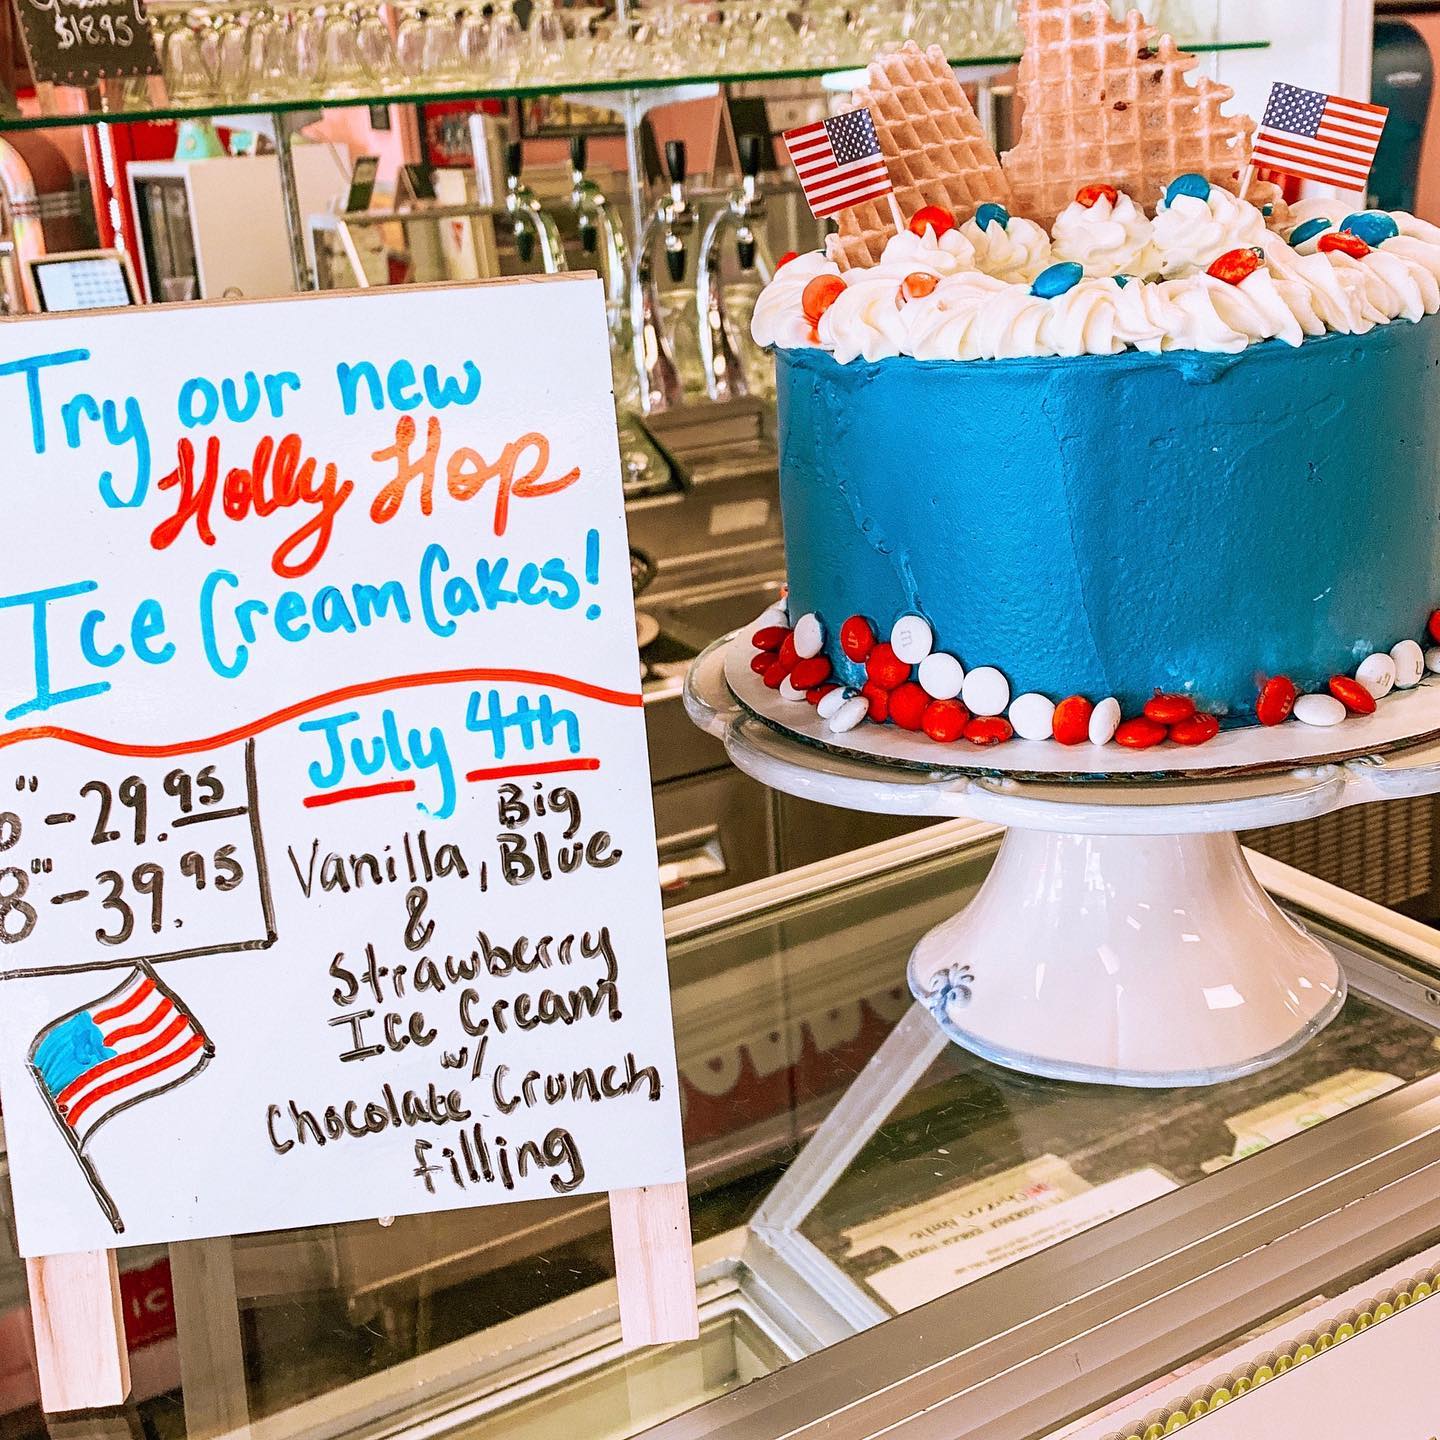 $18.95
Try our new
Holly Hop
Ice Cream Cakes!
6" - 29.95
8" - 39.95
July 4th
Vanilla, Big Blue
&
Strawberry
Ice Cream
w/
Chocolate Crunch
filling